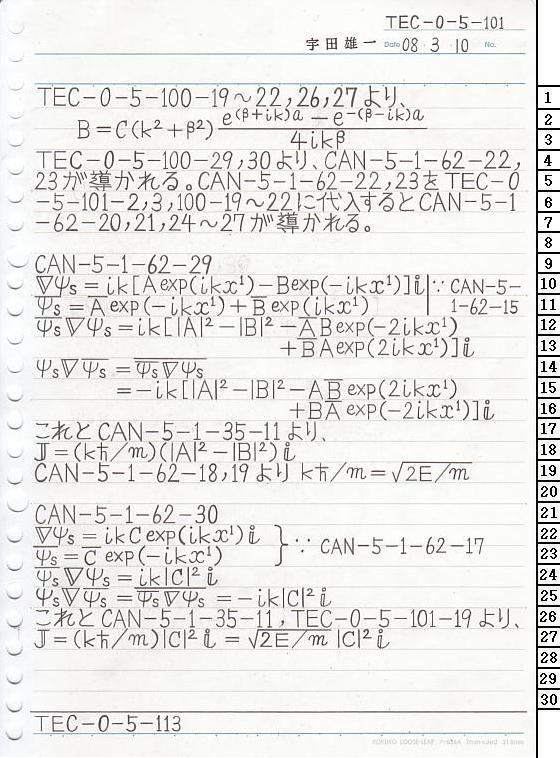 TEC-0-5-101
宇田雄一 Date 08・3・10 No.
TEC-0-5-100-19～22,26,27より、
B=C(k²+β²) (e^(β+ik)a − e^-(β-ik)a)/4ikβ
TEC-0-5-100-29,30より、CAN-5-1-62-22,
23が導かれる。CAN-5-1-62-22,23をTEC-0
-5-101-2,3,100-19～22に代入するとCAN-5-1
-62-20,21,24～27が導かれる。
CAN-5-1-62-29
∇Ψs=ik[Aexp(ikx¹)−Bexp(−ikx¹)]i |∵CAN-5-
Ψ̅s=A̅exp(−ikx¹)+B̅exp(ikx¹) | 1-62-15
Ψ̅s∇Ψs=ik[|A|²−|B|²−A̅Bexp(−2ikx¹)
+B̅Aexp(2ikx¹)]i
Ψs∇Ψ̅s=\overline{Ψ̅s∇Ψs}
=−ik[|A|²−|B|²−AB̅exp(2ikx¹)
+BA̅exp(−2ikx¹)]i
これとCAN-5-1-35-11より、
J=(kħ/m)(|A|²−|B|²)i
CAN-5-1-62-18,19より kħ/m=√(2E/m)
CAN-5-1-62-30
∇Ψs=ikCexp(ikx¹)i } ∵ CAN-5-1-62-17
Ψ̅s=C̅exp(−ikx¹)
Ψ̅s∇Ψs=ik|C|²i
Ψs∇Ψ̅s=\overline{Ψ̅s∇Ψs}=−ik|C|²i
これとCAN-5-1-35-11,TEC-0-5-101-19より、
J=(kħ/m)|C|²i=√(2E/m)|C|²i
TEC-0-5-113
KOKUYO LOOSE-LEAF ノ-836A 7mm ruled 31 lines
1
2
3
4
5
6
7
8
9
10
11
12
13
14
15
16
17
18
19
20
21
22
23
24
25
26
27
28
29
30